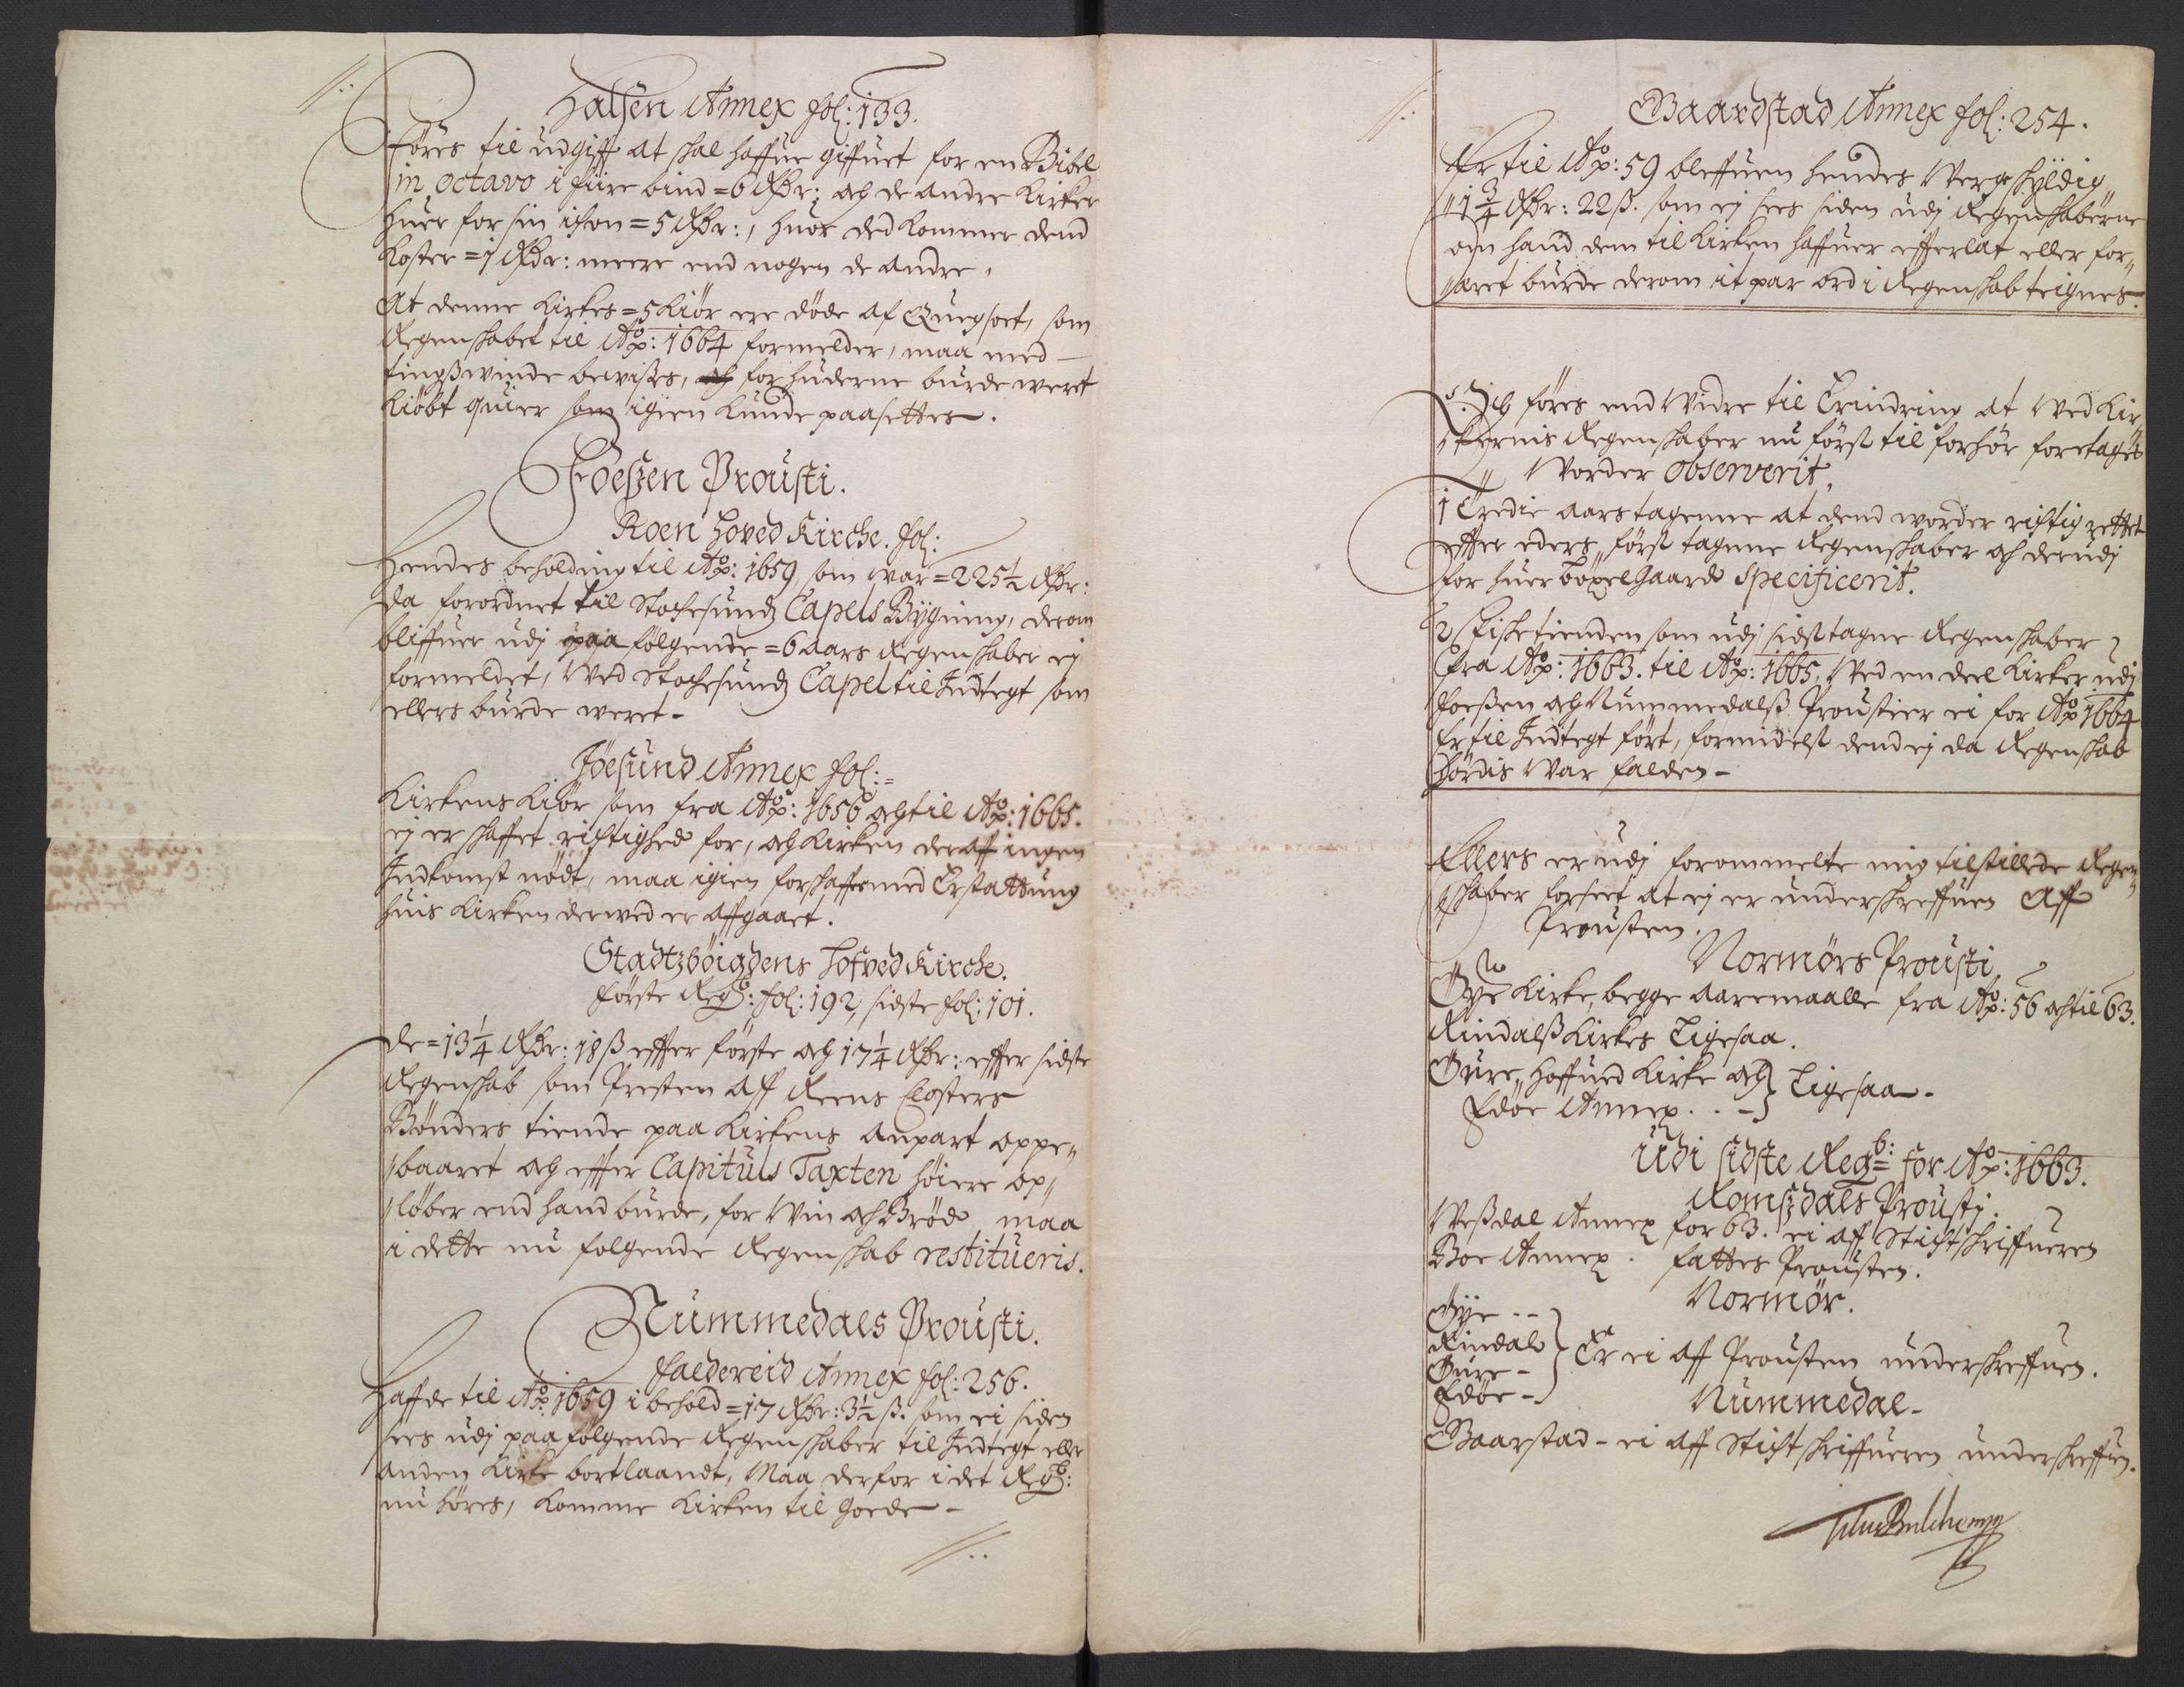 Halsen Annex fol: 133.
Føres til udgifft at skal haffue giffuet for en Bibel
in octavo i fiire bind = 6 Rdr: och de andre Kirker
huer for sin ickon = 5 Rdr:, huor ded kommer dend
koster = 1 Rdr: meere end nogen de andre,
At denne Kirkes = 5 Kiør ere døde af Quegsoet, som
Regenskabet til Ao: 1664 formelder, maa med
tingßwinde bewisßes, for huderne burde weret
kiøbt quier som igien kunde paasettes.
Foeßen Prousti.
Roen Hoved Kirche. fol:
Hendes beholding til Ao: 1659 som war = 225½ Rdr:
da forordnet til Stochesundz Capels Bygning, derom
bliffuer udj paa følgende = 6 aars Regenskaber ej
formeldet, Wed Stochesundz Capel til Indtegt som
ellers burde weret -
Jøesund Annex fol: =
Kirkens Kiør som fra Ao: 1656 och til Ao: 1665.
ej er skaffet richtighed for, och Kirken deraff ingen
Indkomst nødt, maa igien forskaffes med Erstattung
huis Kirken derwed er affgaaet.
Stadtzbøigdens Hofved Kirche.
Første Regb: fol: 192, sidste fol: 101.
De = 13¼ Rdr: 18 ß effter første och 17¼ Rdr: effter sidste
Regenskab som Presten aff Reens Closters
Bønders tiende paa Kirkens anpart oppe„
„baaret och effter Capituls Taxten høiere op„
„løber end hand burde, for Win och Brød maa
i dette nu folgende Regenskab restitueris.
Nummedals Prousti.
Faldereid Annex fol: 256.
Haffde til Ao: 1659 i behold = 17 Rdr: 3½ ß. som ei siden
sees udj paa følgende Regenskaber til Indtegt eller
anden Kirke bortlaandt, Maa derfor i det Regb:
nu høres, komme Kirken til goede -
Baardstad Annex fol: 254.
Er til Ao: 59 bleffuen hendes Werge skyldig
11¾ Rdr: 22 ß. som ej sees siden udj Regenskaberne
om hand dem til Kirken haffuer efferlat eller for„
„aret burde derom it par ord i Regenskab teignes.
Och føres end Widre til Erindring at Wed Kir„
„kernis Regenskaber nu først til forhør foretages
Worder observerit,
1 Tredie aars tagenne at dend worder richtig rettet
effter eders først tagnne Regenskaber och derudj
for huer Bøxelgaard specificerit.
2 Fiske tienden som udj sidst tagne Regenskaber
fra Ao: 1663. til Ao: 1665. Wed en deel Kirker udj
Foeßen och Nummedalß Proustier ei for Ao 1664
Er til Indtegt ført, formidelst dend ej da Regenskab
hørdis War falden -
Ellers er udj forommelte mig tilstillede Regen„
„skaber forseet at ej er underskreffuen Aff
Prousten.
Normørs Prousti
Øye Kirke, begge aaremaalle fra Ao: 56 och til 63.
Rindalß Kirkes Ligesaa.
Øure„ Hoffued Kirke och } Ligesaa -
Edøe Annex . . -
Udi sidste Regb: for Ao: 1663.
Romßdals Prousti.
Weßdal Annex for 63. ei aff Stichtskriffueren
Boe Annex . fattes Prousten.
Normør.
Øye - -
Rindals
Øure -
Edøe - } Er ei aff Prousten underskreffuen.
Nummedal -
Baarstad - ei aff Stichtskriffueren underskreffuen.